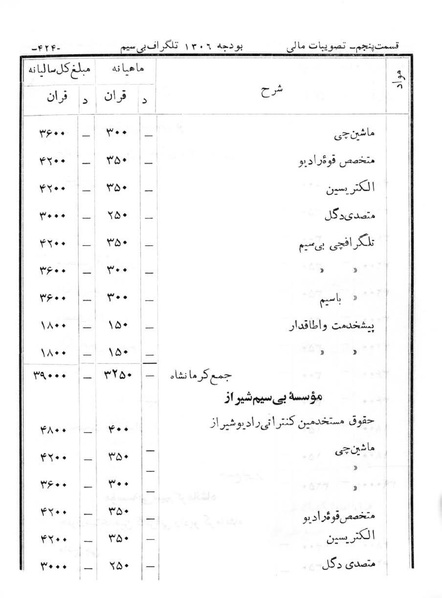 قسمت پنجم – تصویبات مالی بودجه ۱۳۰۶ تلگراف بی‌سیم –۴۲۴–
مواد شرح ماهیانه مبلغ کل سالیانه
قران د قران د
ماشین‌چی ۳۰۰ – ۳۶۰۰ –
متخصص قوهٔ رادیو ۳۵۰ – ۴۲۰۰ –
الکتریسین ۳۵۰ – ۴۲۰۰ –
متصدی دگل ۲۵۰ – ۳۰۰۰ –
تلگرافچی بی‌سیم ۳۵۰ – ۴۲۰۰ –
« « ۳۰۰ – ۳۶۰۰ –
« باسیم ۳۰۰ – ۳۶۰۰ –
پیشخدمت و اطاقدار ۱۵۰ – ۱۸۰۰ –
« « ۱۵۰ – ۱۸۰۰ –
جمع کرمانشاه ۳۲۵۰ – ۳۹۰۰۰ –
مؤسسهٔ بی‌سیم شیراز
حقوق مستخدمین کنتراتی رادیو شیراز ۴۰۰ – ۴۸۰۰ –
ماشین‌چی ۳۵۰ – ۴۲۰۰ –
« ۳۰۰ – ۳۶۰۰ –
«
متخصص قوهٔ رادیو ۳۵۰ – ۴۲۰۰ –
الکتریسین ۳۵۰ – ۴۲۰۰ –
متصدی دگل ۲۵۰ – ۳۰۰۰ –